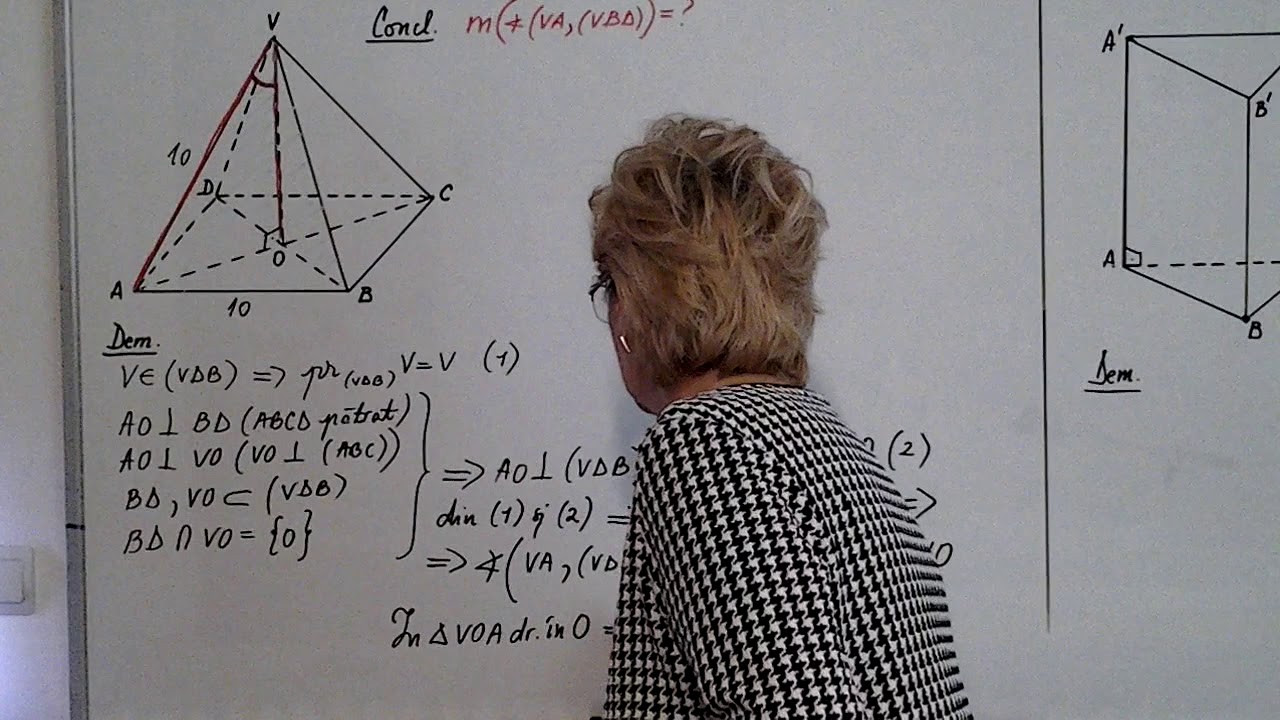 V
Concl. m(∢(VA,(VBD))=?
10
D
C
O
A
B
10
Dem.
V∈(VDB) => pr(VDB) V=V (1)
AO ⊥ BD (ABCD pătrat)
AO ⊥ VO (VO ⊥ (ABC))
BD, VO ⊂ (VDB)
BD ∩ VO = {O}
=> AO ⊥ (VDB
(2)
din (1) și (2) =
=>
=> ∢(VA,(VD
O
În △VOA dr. în O =
A'
B'
A
B
Dem.